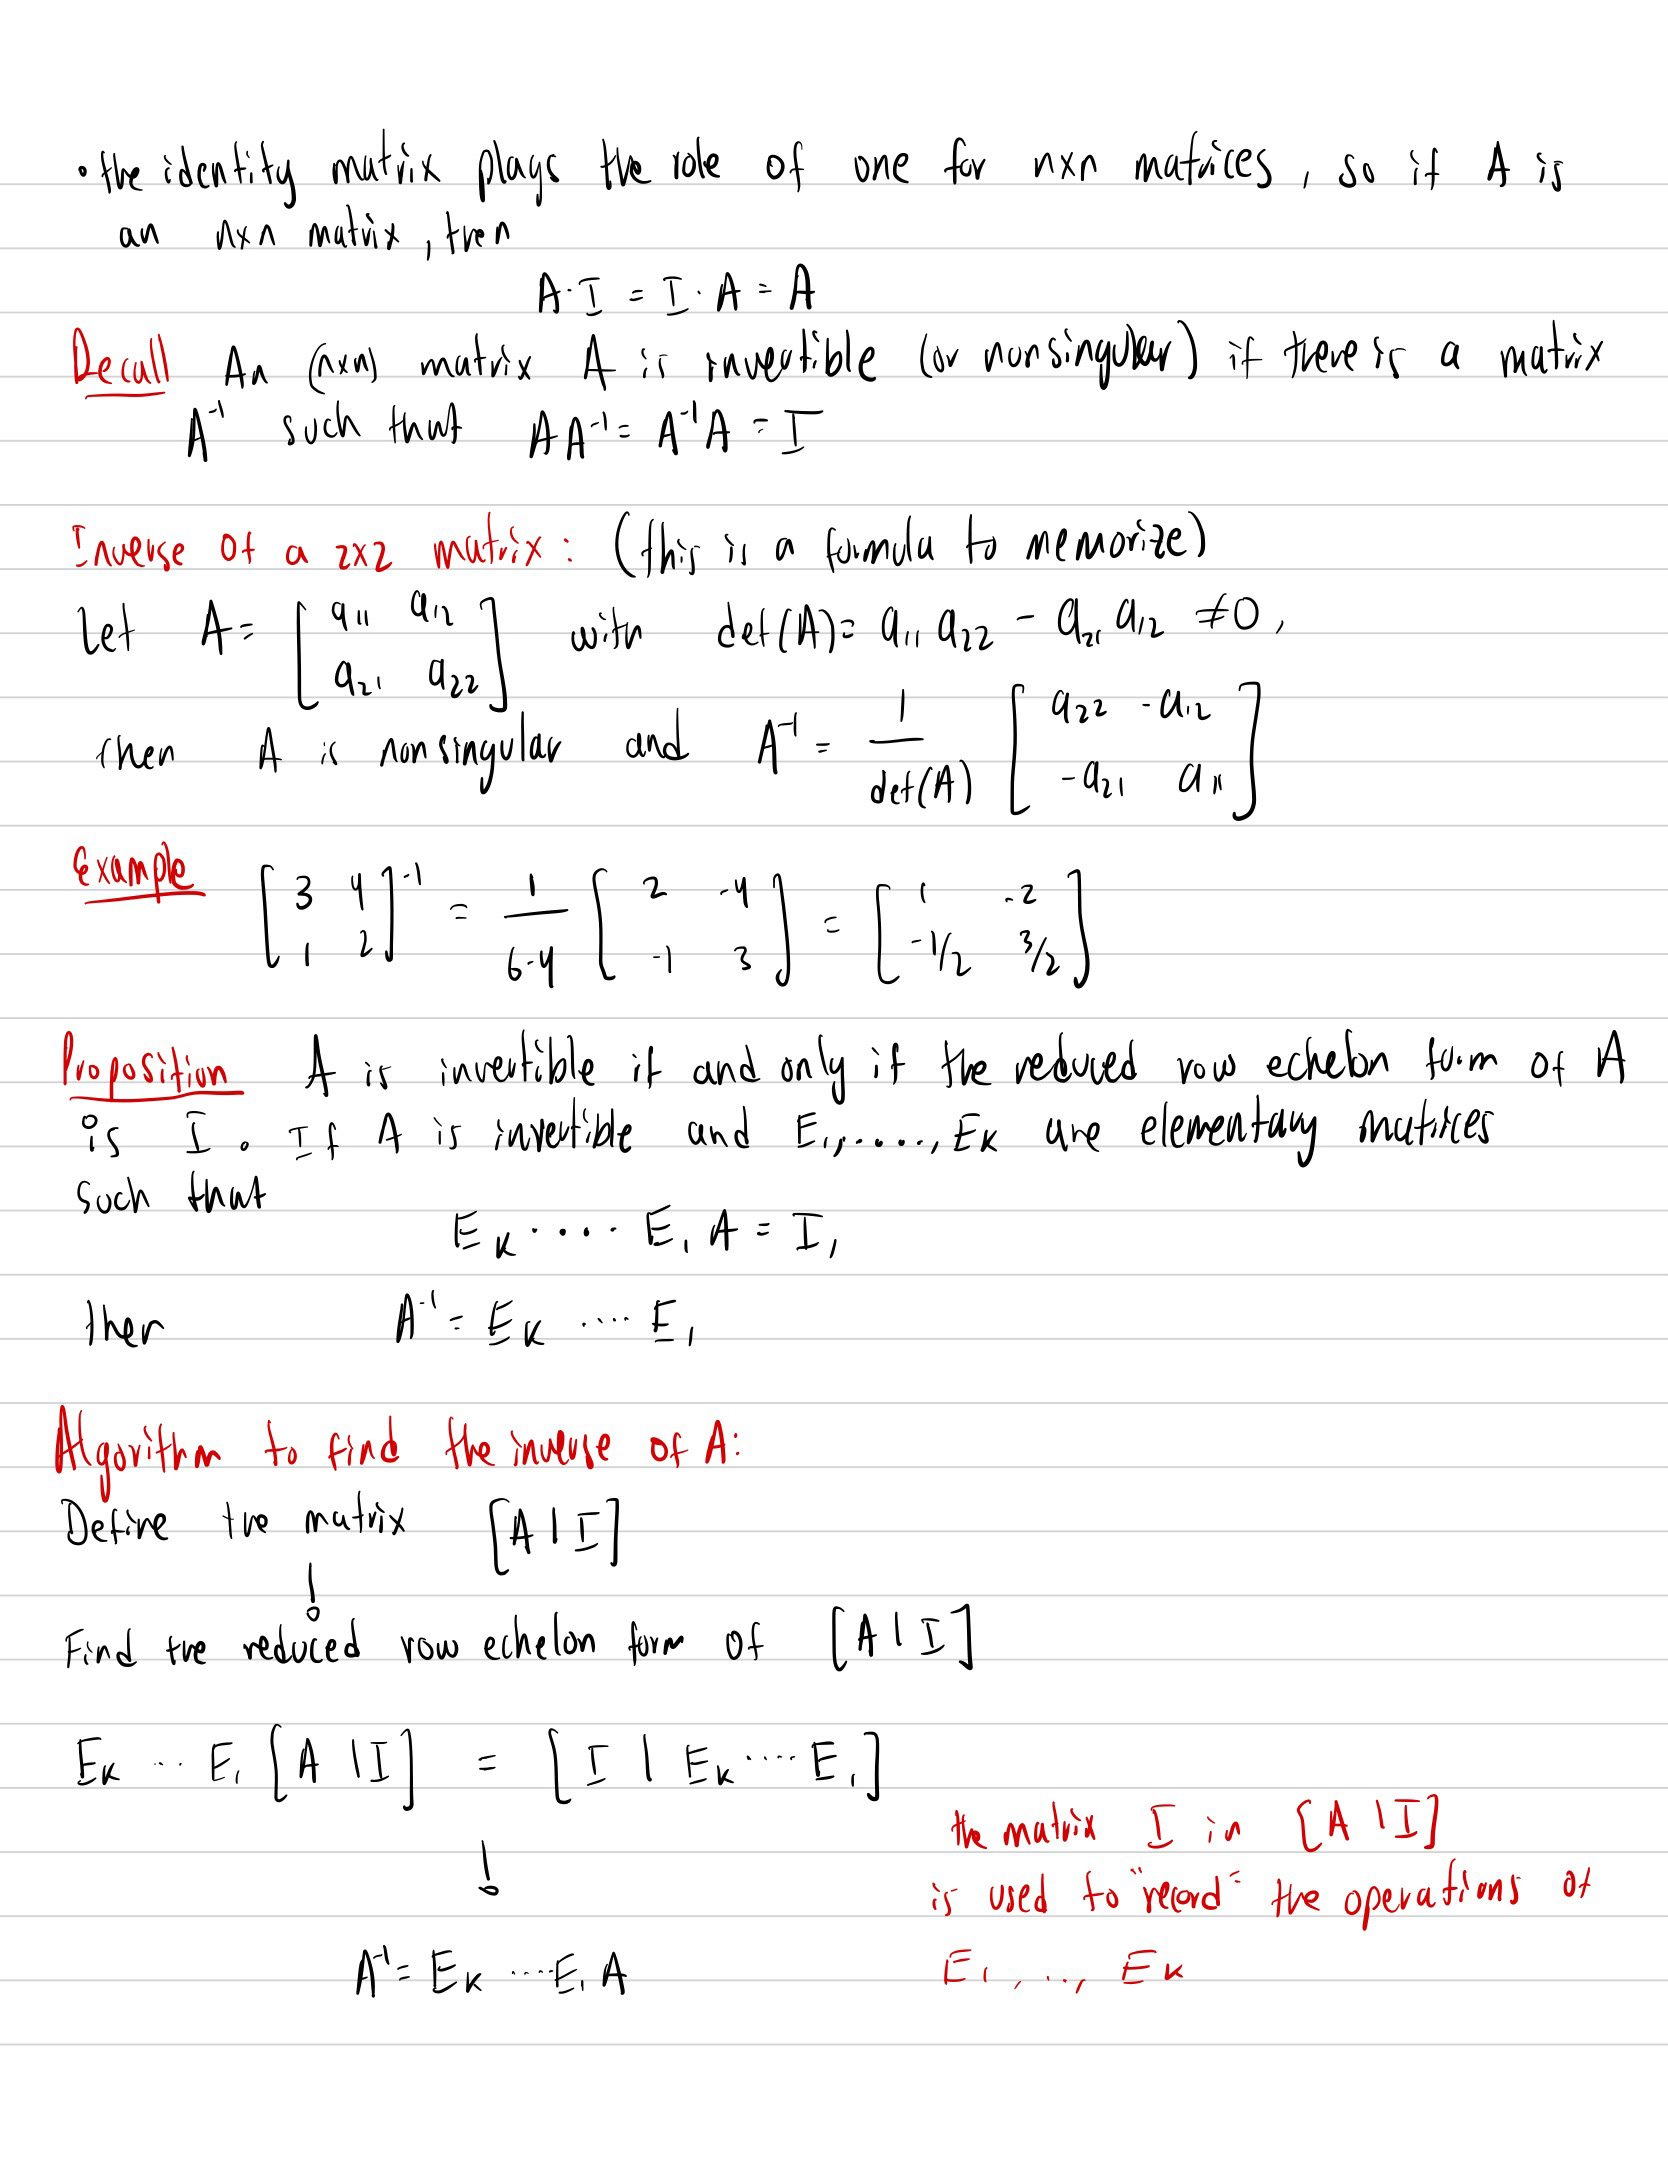 • the identity matrix plays the role of one for nxn matrices, so if A is
an nxn matrix, then
A·I = I·A = A
Decall An (nxn) matrix A is invertible (or nonsingular) if there is a matrix
A⁻¹ such that AA⁻¹ = A⁻¹A = I
Inverse of a 2x2 matrix: (this is a formula to memorize)
Let A = [a₁₁ a₁₂; a₂₁ a₂₂] with det(A) = a₁₁ a₂₂ - a₂₁ a₁₂ ≠ 0,
then A is nonsingular and A⁻¹ = 1/det(A) [a₂₂ -a₁₂; -a₂₁ a₁₁]
Example [3 4; 1 2]⁻¹ = 1/(6-4) [2 -4; -1 3] = [1 -2; -1/2 3/2]
Proposition A is invertible if and only if the reduced row echelon form of A
is I. If A is invertible and E₁,....., Eₖ are elementary matrices
such that
Eₖ .... E₁ A = I,
then A⁻¹ = Eₖ .... E₁
Algorithm to find the inverse of A:
Define the matrix [A | I]
↓
Find the reduced row echelon form of [A | I]
Eₖ ... E₁ [A | I] = [I | Eₖ .... E₁]
↓
the matrix I in [A | I]
is used to "record" the operations of
E₁, ..., Eₖ
A⁻¹ = Eₖ .... E₁ A